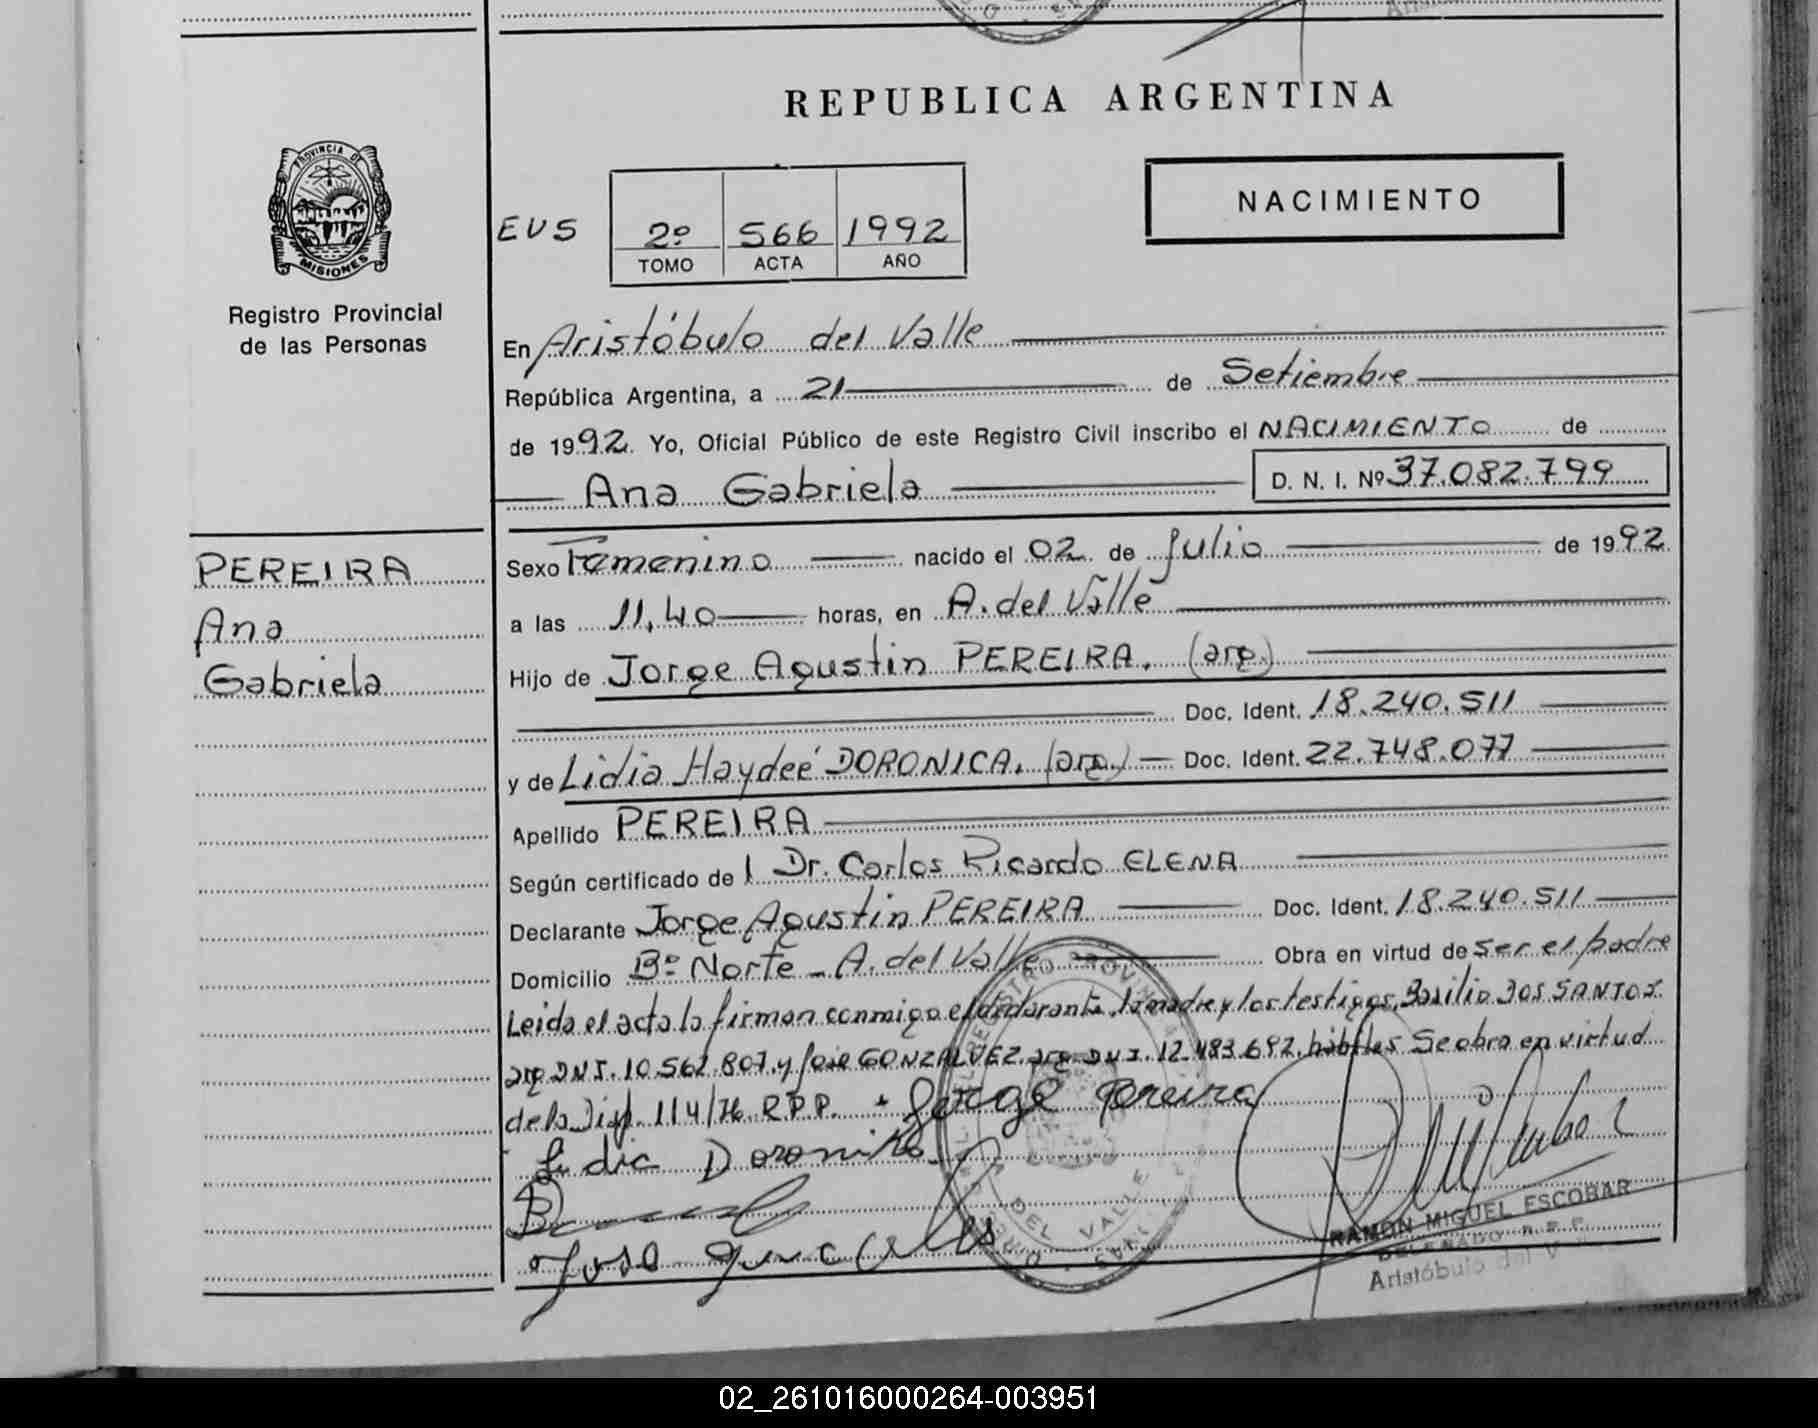 REPUBLICA ARGENTINA
PROVINCIA DE
MISIONES
Registro Provincial
de las Personas
NACIMIENTO
EVS 2º 566 1992
TOMO ACTA AÑO
En Aristóbulo del Valle
República Argentina, a 21 de Setiembre
de 1992. Yo, Oficial Público de este Registro Civil inscribo el NACIMIENTO de
Ana Gabriela D. N. I. Nº 37.082.799
PEREIRA
Ana
Gabriela
Sexo Femenino nacido el 02 de Julio de 1992
a las 11,40 horas, en A. del Valle
Hijo de Jorge Agustin PEREIRA. (arg.)
Doc. Ident. 18.240.511
y de Lidia Haydeé DORONICA. (arg.) Doc. Ident. 22.748.077
Apellido PEREIRA
Según certificado de l Dr. Carlos Ricardo ELENA
Declarante Jorge Agustin PEREIRA Doc. Ident. 18.240.511
Domicilio Bº Norte - A. del Valle Obra en virtud de ser el padre
Leida el acta la firman conmigo el declarante, la madre y los testigos, Basilio DOS SANTOS
arg. DNI. 10.562.807. y José GONZALVEZ arg. DNI. 12.483.692. hábiles. Se obra en virtud
de la Disp. 114/76 R.P.P. Jorge Pereira
Lidia Doronika
RAMON MIGUEL ESCOBAR
DELEGADO R.P.P.
Aristóbulo del V
DEL VALLE
02_261016000264-003951